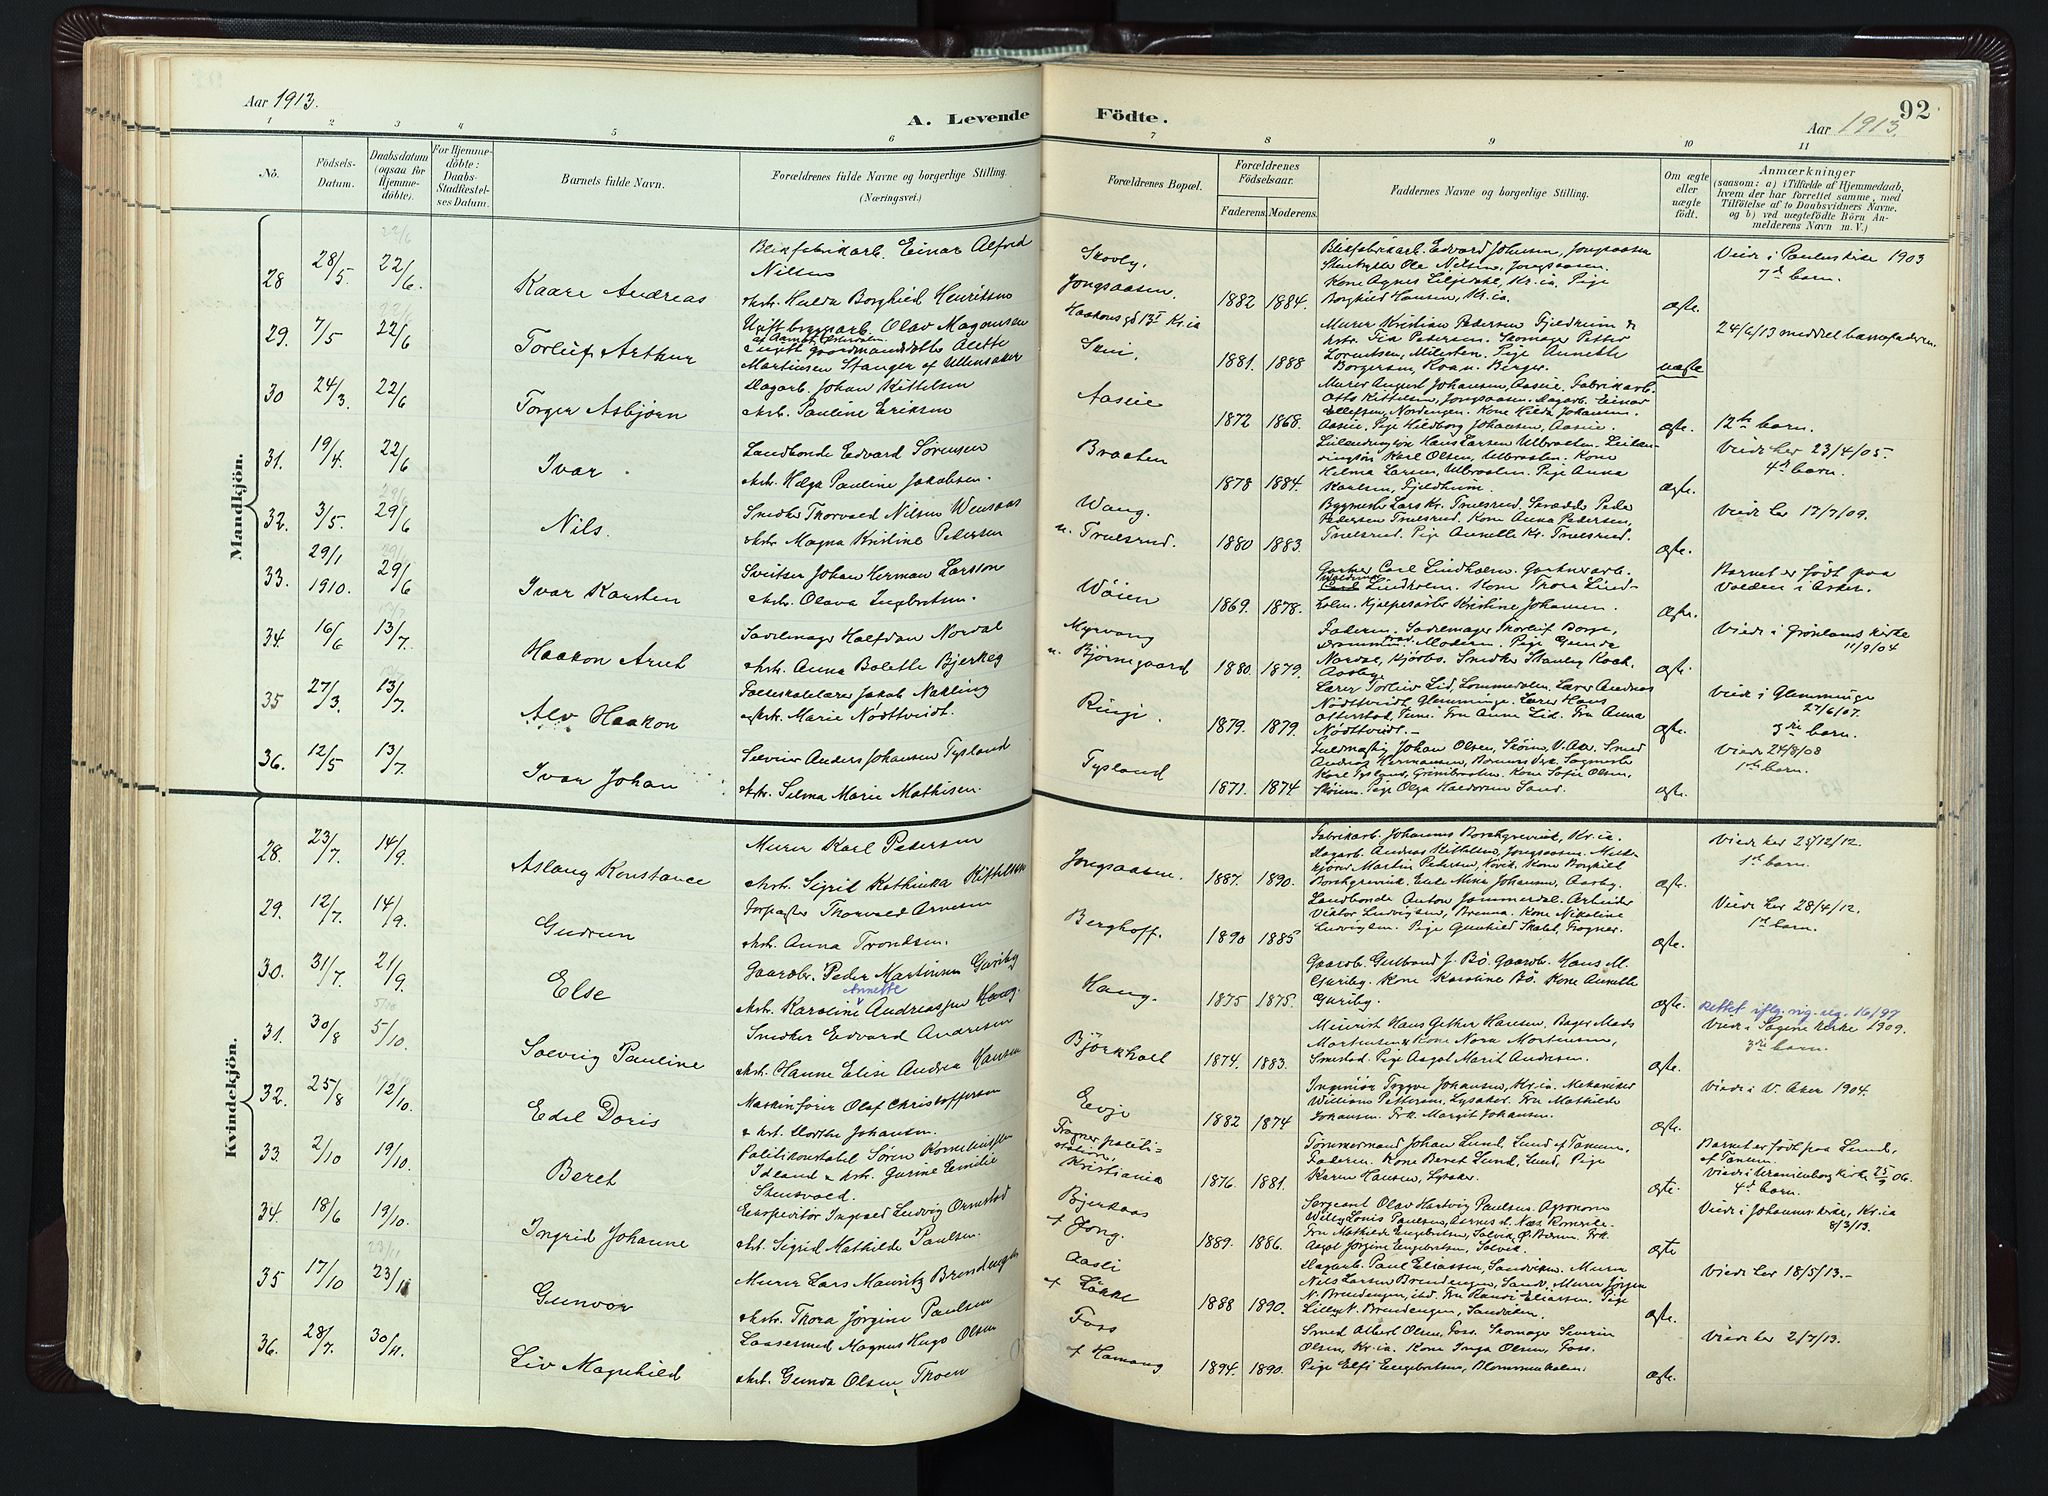 Aar 1913.
A. Levende
Födte.
92
Aar 1913.
1 2 3 4 5 6 7 8 9 10 11
No.
Födsels-
Datum.
Daabsdatum
(ogsaa for
Hjemme-
döbte).
For Hjemme-
döbte:
Daabs-
Stadfæstel-
ses Datum.
Barnets fulde Navn.
Forældrenes fulde Navne og borgerlige Stilling.
(Næringsvei.)
Forældrenes Bopæl.
Forældrenes
Födselsaar.
Faderens. Moderens.
Faddernes Navne og borgerlige Stilling.
Om ægte
eller
uægte
födt.
Anmærkninger
(saasom: a) i Tilfælde af Hjemmedaab,
hvem der har forrettet samme, med
Tilföielse af to Daabsvidners Navne,
og b) ved uægtefödte Börn An-
melderens Navn m. V.)
Mandkjön.
28 28/5 22/6. Kaare Andreas
Blikfabrikarb. Einar Alfred
Nilsen
Hulda Borghild Henriksen
Skovly,
Jongsaasen.
1882 1884.
Blikfabrikarb. Edvard Johnsen, Jongsaasen
Ole Nilsen, Jongsaasen.
Kone Agnes Liljedahl, Kr.ia. Pige
Borghild Hansen, Kr.ia.
ægte.
Viede i Pauluskirke 1903
7de barn.
29. 7/5 22/6 Torleif Arthur
Ugift byggarb. Olav Magnussen
Martinsen Stanger af Ullensaker
Skui,
1881. 1888
Murer Kristian Pedersen Fjeldheim &
Tea Petersen. Skomager Petter
Lorentsen, Milesten. Pige Annette
Borgersen, Berger.
uægte
24/6/13 meddelt barnefaderen.
30 24/3. 22/6 Torger Asbjørn
Dagarb. Johan Kittelsen
Pauline Eriksen
Aasen
1872 1868.
Murer August Johansen, Aasen. Fabrikarb.
Otto Kittelsen, Jongsaasen. Dagarb. Einar
Ellefsen, Nordengen. Kone Hilda Johansen.
Aasen. Pige Hildborg Johansen, Aasen.
ægte.
12te barn.
31. 19/4. 22/6 Ivar
Landbonde Edvard Sørensen
Helga Pauline Jakobsen.
Braaten
1878 1884.
Hans Larsen Ulbraaten.
Karl Olsen, Ulbraaten. Kone
Helma Larsen, Ulbraaten. Pige Anna
Karlsen, Fjeldheim.
ægte.
Viede her 23/4/05.
4de barn.
32. 3/5. 29/6 Nils.
Snedker Thorvald Nilsen Wensaas
Magna Kristine Pedersen
Wang.
Truelsrud.
1880 1883.
Bygmester Lars Kr. Truelsrud. Skrædder Peder
Pedersen Truelsrud. Kone Anna Pedersen,
Truelsrud. Pige Annette Kr. Truelsrud.
ægte.
Viede her 17/7/09.
33. 29/1 1910. 29/6 Ivar Karsten
Sveitser Johan Herman Larsson
Olava Ingebretsen.
Wøien
1869. 1878.
Gartner Carl Lindholm. Gartnerarb.
Lindholm. Kone Thora Lind-
holm. Kristine Johansen.
ægte.
Barnet er født paa
Valden i Asker.
34. 16/6 13/7. Haakon Arnt
Sadelmager Halfdan Nordal
Anna Bolette Bjerkeg
Myrvang
Bjørnegaard
1880. 1879.
Faderen. Sadelmager Thorleif Borge,
Drammen. Moderen. Pige Gunda
Nordal, Kjørbo. Snedker Stanley Kook.
Aasby.
ægte.
Viede i Grønlands kirke
11/9/04
35 27/3. 13/7. Alv Haakon
Folkeskolelærer Jakob Nakling
Marie Nødtvedt.
Ringi.
1879. 1879.
Lærer Torleiv Lid, Lommedalen. Lærer Andreas
Nødtvedt, Glemminge. Lærer Hans
Otterstad, Tune. Fru Anne Lid. Fru Anna
Nødtvedt.
ægte.
Viede i Glemminge
27/6/07.
3die barn.
36. 12/5 13/7. Ivar Johan
Anders Johansen Tysland
Selma Marie Mathisen.
Tysland
1871. 1874
Johan Olsen, Skøien, V. Aker. Smed
Andreas Hermansen,
Karl Tysland, Grinibraaten. Kone Sofie Olsen,
Skøien. Pige Olga Haldorsen Sand.
ægte.
Viede 24/8/08
1ste barn.
Kvindekjön.
28. 23/7. 14/9. Aslaug Konstance
Murer Karl Pedersen
Sigrid Kathinka Kittelsen
Jongsaasen.
1887. 1890.
Fabrikarb. Johannes Borchgrevink, Kr.ia.
Dagarb. Andreas Kittelsen, Jongsaasen.
Martin Pedersen, Høvik. Kone Borghild
Borchgrevink. Johansen, Aasby.
ægte.
Viede her 25/12/12.
1ste barn.
29. 12/7. 14/9. Gudrun
Forpagter Thorvald Arnesen
Anna Trondsen.
Berghoff.
1890 1885
Landbonde Anton Jommerdal. Arbeider
Viktor Ludvigsen, Brenna. Kone Nikoline
Ludvigsen. Pige Gunhild Skabel, Frogner.
ægte.
Viede her 28/4/12.
1ste barn.
30. 31/7. 21/9. Else
Gaardbr. Peder Martinsen Guriby
Annette
Karoline Andreassen Haug.
Haug.
1875 1875.
Gaardbr. Gulbrand J. Bø. Gaardbr. Hans M.
Guriby. Kone Karoline Bø. Kone Annette
Guriby.
ægte.
Rettet iflg. vig. reg. 16/97
31. 30/8 5/10. Solveig Pauline
Snedker Edvard Andresen
Hanne Elise Andrea Hansen
Bjørkhall
1874. 1883.
Hans Gether Hansen. Bager Mads
Mortensen, Kone Nora Mortensen,
Smestad. Pige Aagot Marit Andersen.
ægte.
Viede i Sagene kirke 1909.
3die barn.
32. 25/8 12/10. Edel Doris
Maskinfører Olaf Christoffersen
Dorthe Johansen.
Evje
1882 1874
Ingeniør Trygve Johansen, Kr.ia. Mekaniker
William Pettersen, Lysaker. Fru Mathilde
Johansen. Frk. Margit Johansen.
ægte.
Viede i V. Aker 1904.
33. 2/10 19/10. Beret
Politikonstabel Søren Korneliussen
Idland & Gurine Emilie
Stensvold.
Frogner politi-
station,
Kristiania
1876. 1881.
Tømmermand Johan Lund, Lund af Tanum.
Faderen. Kone Beret Lund, Lund, Pige
Karen Hansen, Lysaker.
ægte.
Barnet er født paa Lund,
af Tanum.
Viede i Uranienborg kirke 25/3 06.
4de barn.
34. 18/6 19/10. Ingrid Johanne
Ekspeditør Ingvald Ludvig Ørnestad
Sigrid Mathilde Paulsen.
Bjerkaas
+ Jong.
1889. 1886.
Sergeant Olav Hartvig Paulsen. Agronom
Willy Louis Paulsen, Aarnes st. Næs Romerike.
Fru Mathilde Engebretsen, Solvik, Ø. Bærum. Frk.
Aagot Jørgine Engebretsen, Solvik.
ægte
Viede i Johannes kirke, Kr.ia
8/3/13.
35 17/10 23/11 Gunvor
Murer Lars Mauritz Brendengen
Thora Jørgine Paulsen
Aasli
+ Løkke
1888 1890.
Dagarb. Paul Eliassen, Sandviken. Murer
Nils Larsen Brendengen, Sandv. Murer Jørgen
N. Brendengen, ibd. Fru Randi Eliassen. Pige
Lilly N. Brendengen, Sandviken.
ægte.
Viede her 18/5/13.-
36. 28/7. 30/11. Liv Magnhild
Laasesmed Magnus Hugo Olsen
Gunda Olsen, Thoen
Foss
+ Hamang
1894. 1890.
Smed Albert Olsen, Foss. Skomager Severin
Olsen, Kr.ia. Kone Inga Olsen, Foss.
Pige Elfi Engebretsen, Blommenholm.
ægte.
Viede her 2/7/13.